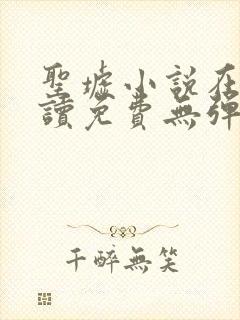 聖墟小說在
讀免費無彈
千醉無笑